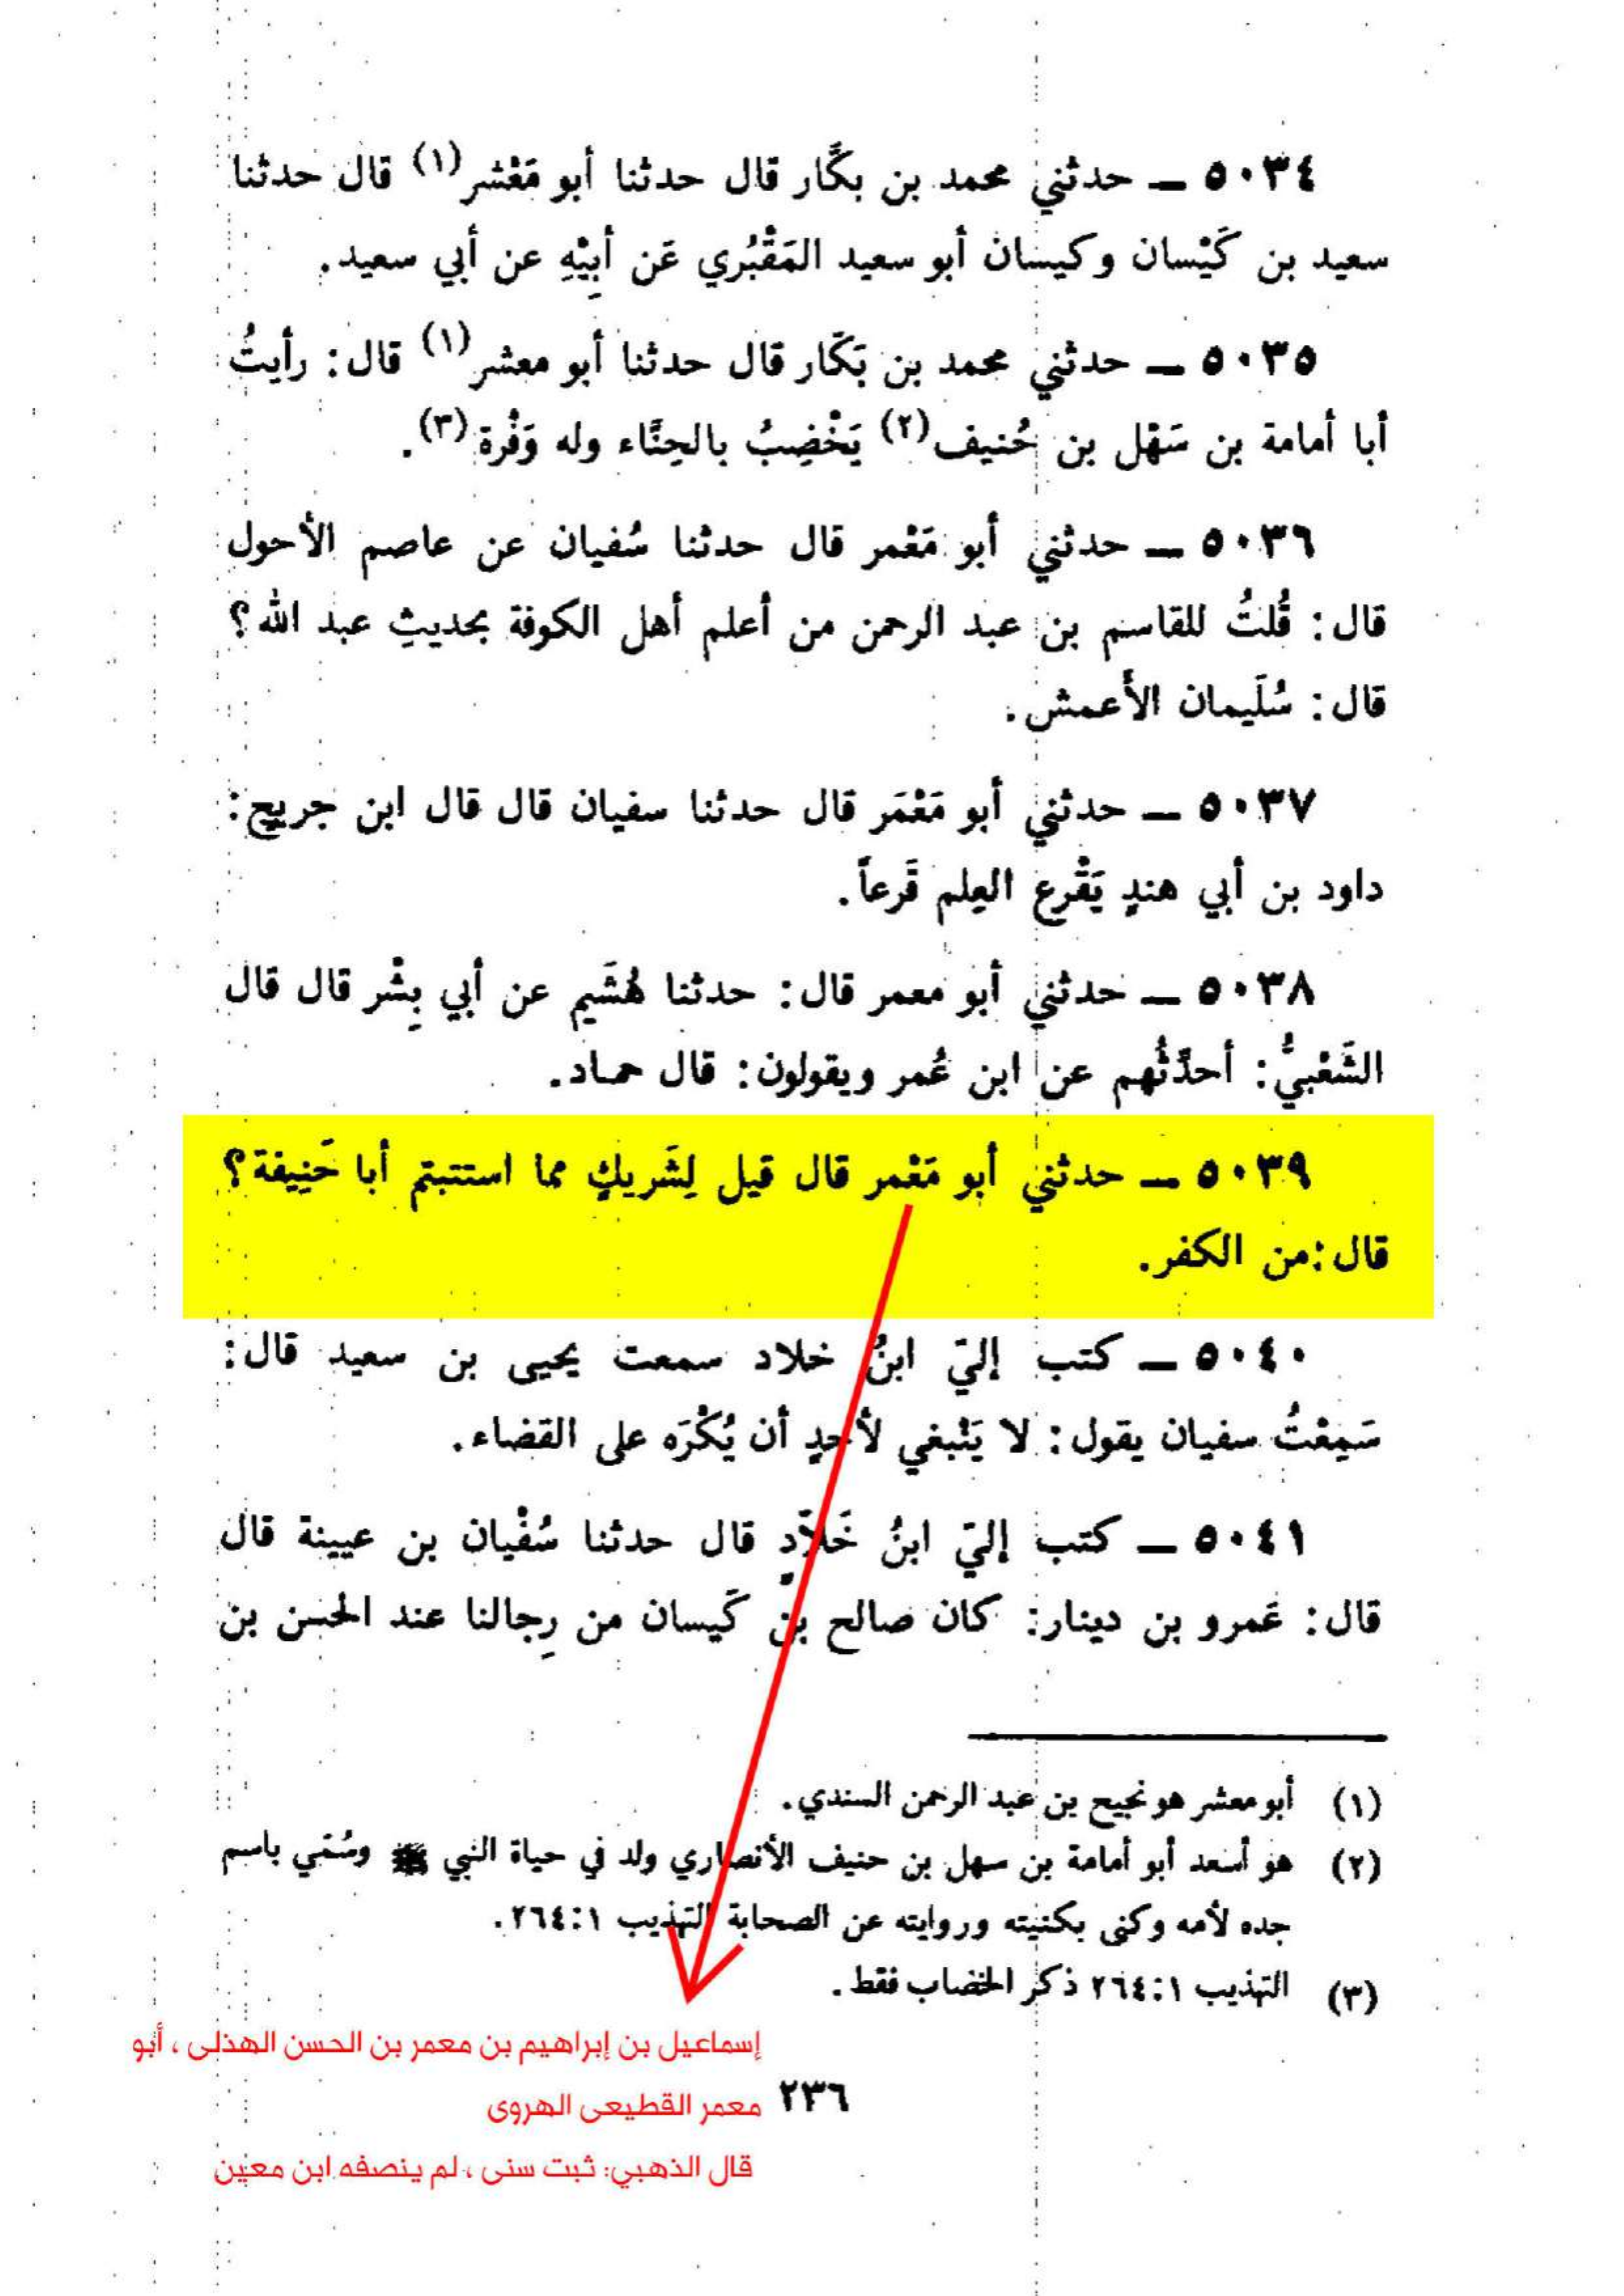 ٥٠٣٤ — حدثني محمد بن بكَّار قال حدثنا أبو مَعْشر(١) قال حدثنا
سعيد بن كَيْسان وكيسان أبو سعيد المَقْبُري عَن أبِيْهِ عن أبي سعيد.
٥٠٣٥ — حدثني محمد بن بَكَّار قال حدثنا أبو معشر(١) قال: رأيتُ
أبا أمامة بن سَهْل بن حُنيف(٢) يَخْضِبُ بالحِنَّاء وله وَفْرة(٣).
٥٠٣٦ — حدثني أبو مَعْمر قال حدثنا سُفيان عن عاصم الأحول
قال: قُلتُ للقاسم بن عبد الرحمن من أعلم أهل الكوفة بحديثِ عبد الله؟
قال: سُلَيمان الأعمش.
٥٠٣٧ — حدثني أبو مَعْمَر قال حدثنا سفيان قال قال ابن جريج:
داود بن أبي هندٍ يَقْرع العِلم قَرعاً.
٥٠٣٨ — حدثني أبو معمر قال: حدثنا هُشَيم عن أبي بِشْر قال قال
الشَعْبيُّ: أحدِّثُهم عن ابن عُمر ويقولون: قال حماد.
٥٠٣٩ — حدثني أبو مَعْمر قال قيل لِشَريكٍ مما استتبتم أبا حَنِيفة؟
قال: من الكفر.
٥٠٤٠ — كتب إليّ ابنُ خلاد سمعت يحيى بن سعيد قال:
سَمِعْتُ سفيان يقول: لا يَنْبغي لأحدٍ أن يُكْرَه على القضاء.
٥٠٤١ — كتب إليّ ابنُ خَلاَّدٍ قال حدثنا سُفْيان بن عيينة قال
قال: عَمرو بن دينار: كان صالح بن كَيسان من رِجالنا عند الحسن بن
(١) أبو معشر هو نجيح بن عبد الرحمن السندي.
(٢) هو أسعد أبو أمامة بن سهل بن حنيف الأنصاري ولد في حياة النبي ﷺ وسُمّي باسم
جده لأمه وكنى بكنيته وروايته عن الصحابة التهذيب ١:٢٦٤.
(٣) التهذيب ١:٢٦٤ ذكر الخضاب فقط.
إسماعيل بن إبراهيم بن معمر بن الحسن الهذلى ، أبو
معمر القطيعى الهروى
٢٣٦
قال الذهبي: ثبت سنى ، لم ينصفه ابن معين